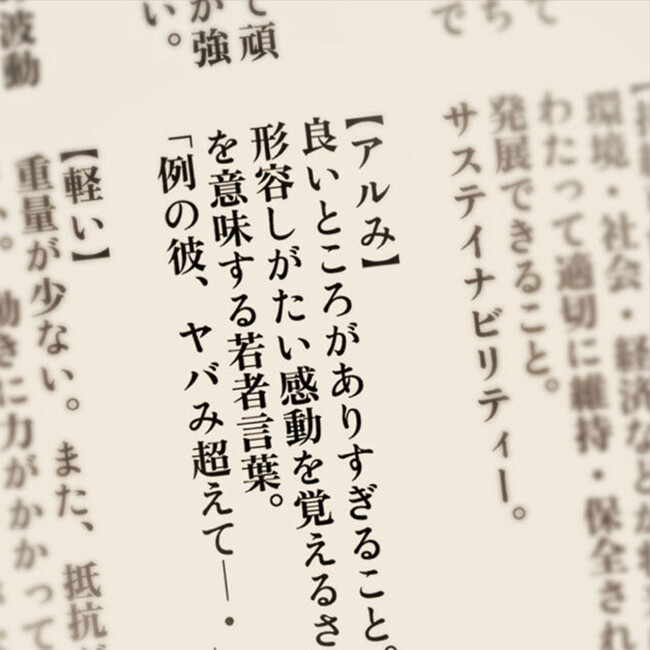 環境・社会・経済などが将
わたって適切に維持・保全され
発展できること。
サスティナビリティー。
【アルみ】
良いところがありすぎること。
形容しがたい感動を覚えるさ
を意味する若者言葉。
「例の彼、ヤバみ超えて―・
て頑
が強
い。
【軽い】
重量が少ない。また、抵抗が
動きに力がかかって
波動